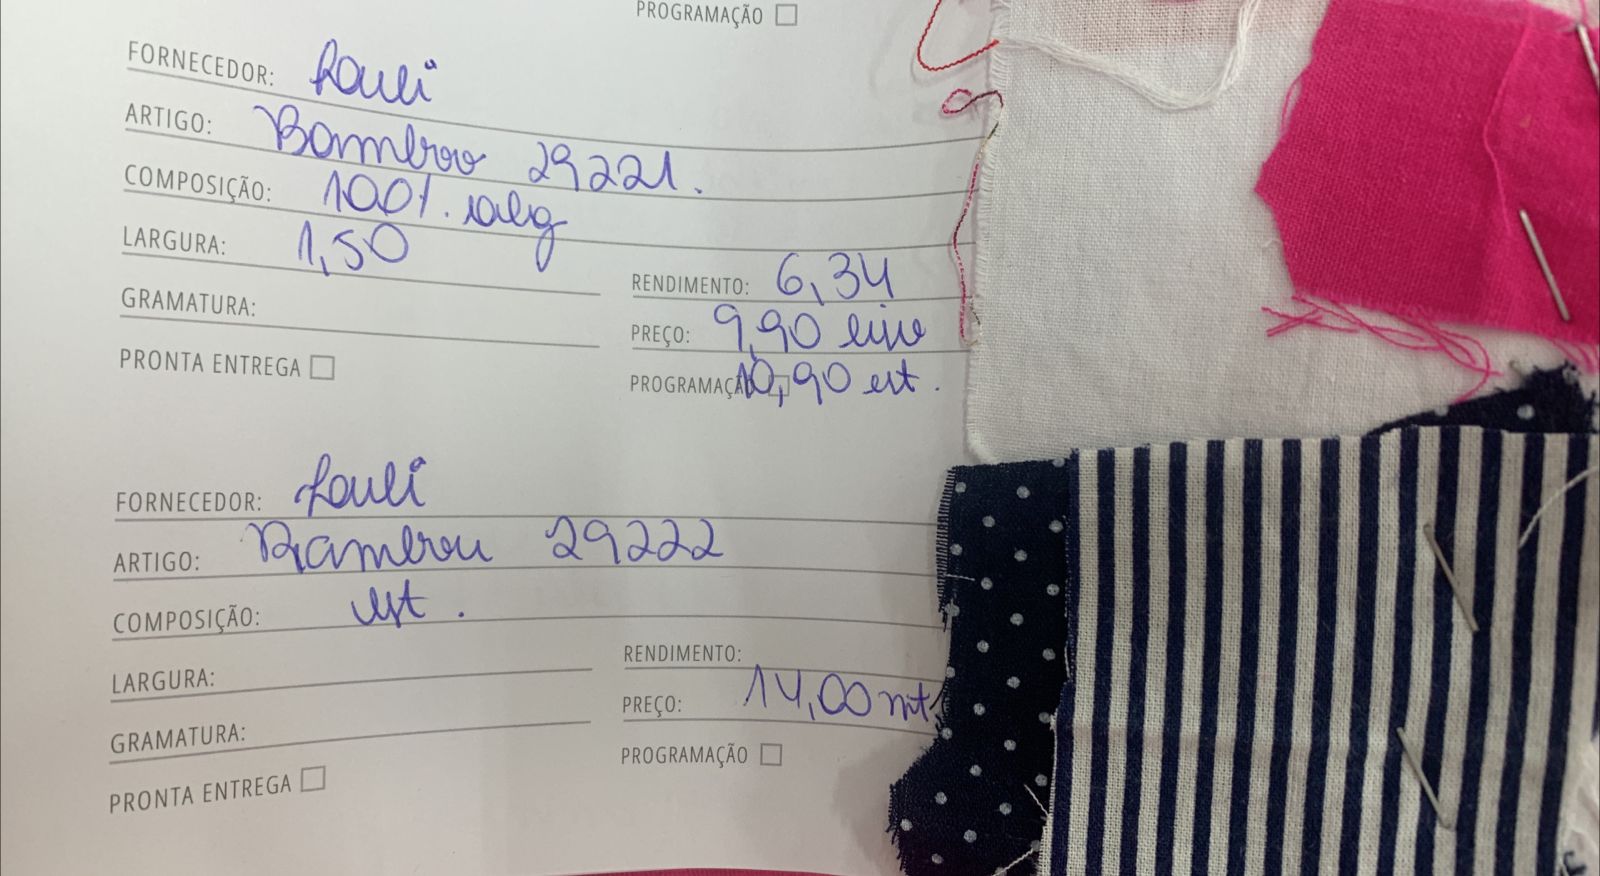 PROGRAMAÇÃO
FORNECEDOR: Louli
ARTIGO: Bamboo 29221.
COMPOSIÇÃO: 100%. alg
LARGURA: 1,50
RENDIMENTO: 6,34
GRAMATURA:
PREÇO: 9,90 liso
PRONTA ENTREGA
PROGRAMAÇÃO 10,90 est.
FORNECEDOR: Louli
ARTIGO: Bambou 29222
COMPOSIÇÃO: est.
RENDIMENTO:
LARGURA:
PREÇO: 14,00 mt
GRAMATURA:
PROGRAMAÇÃO
PRONTA ENTREGA